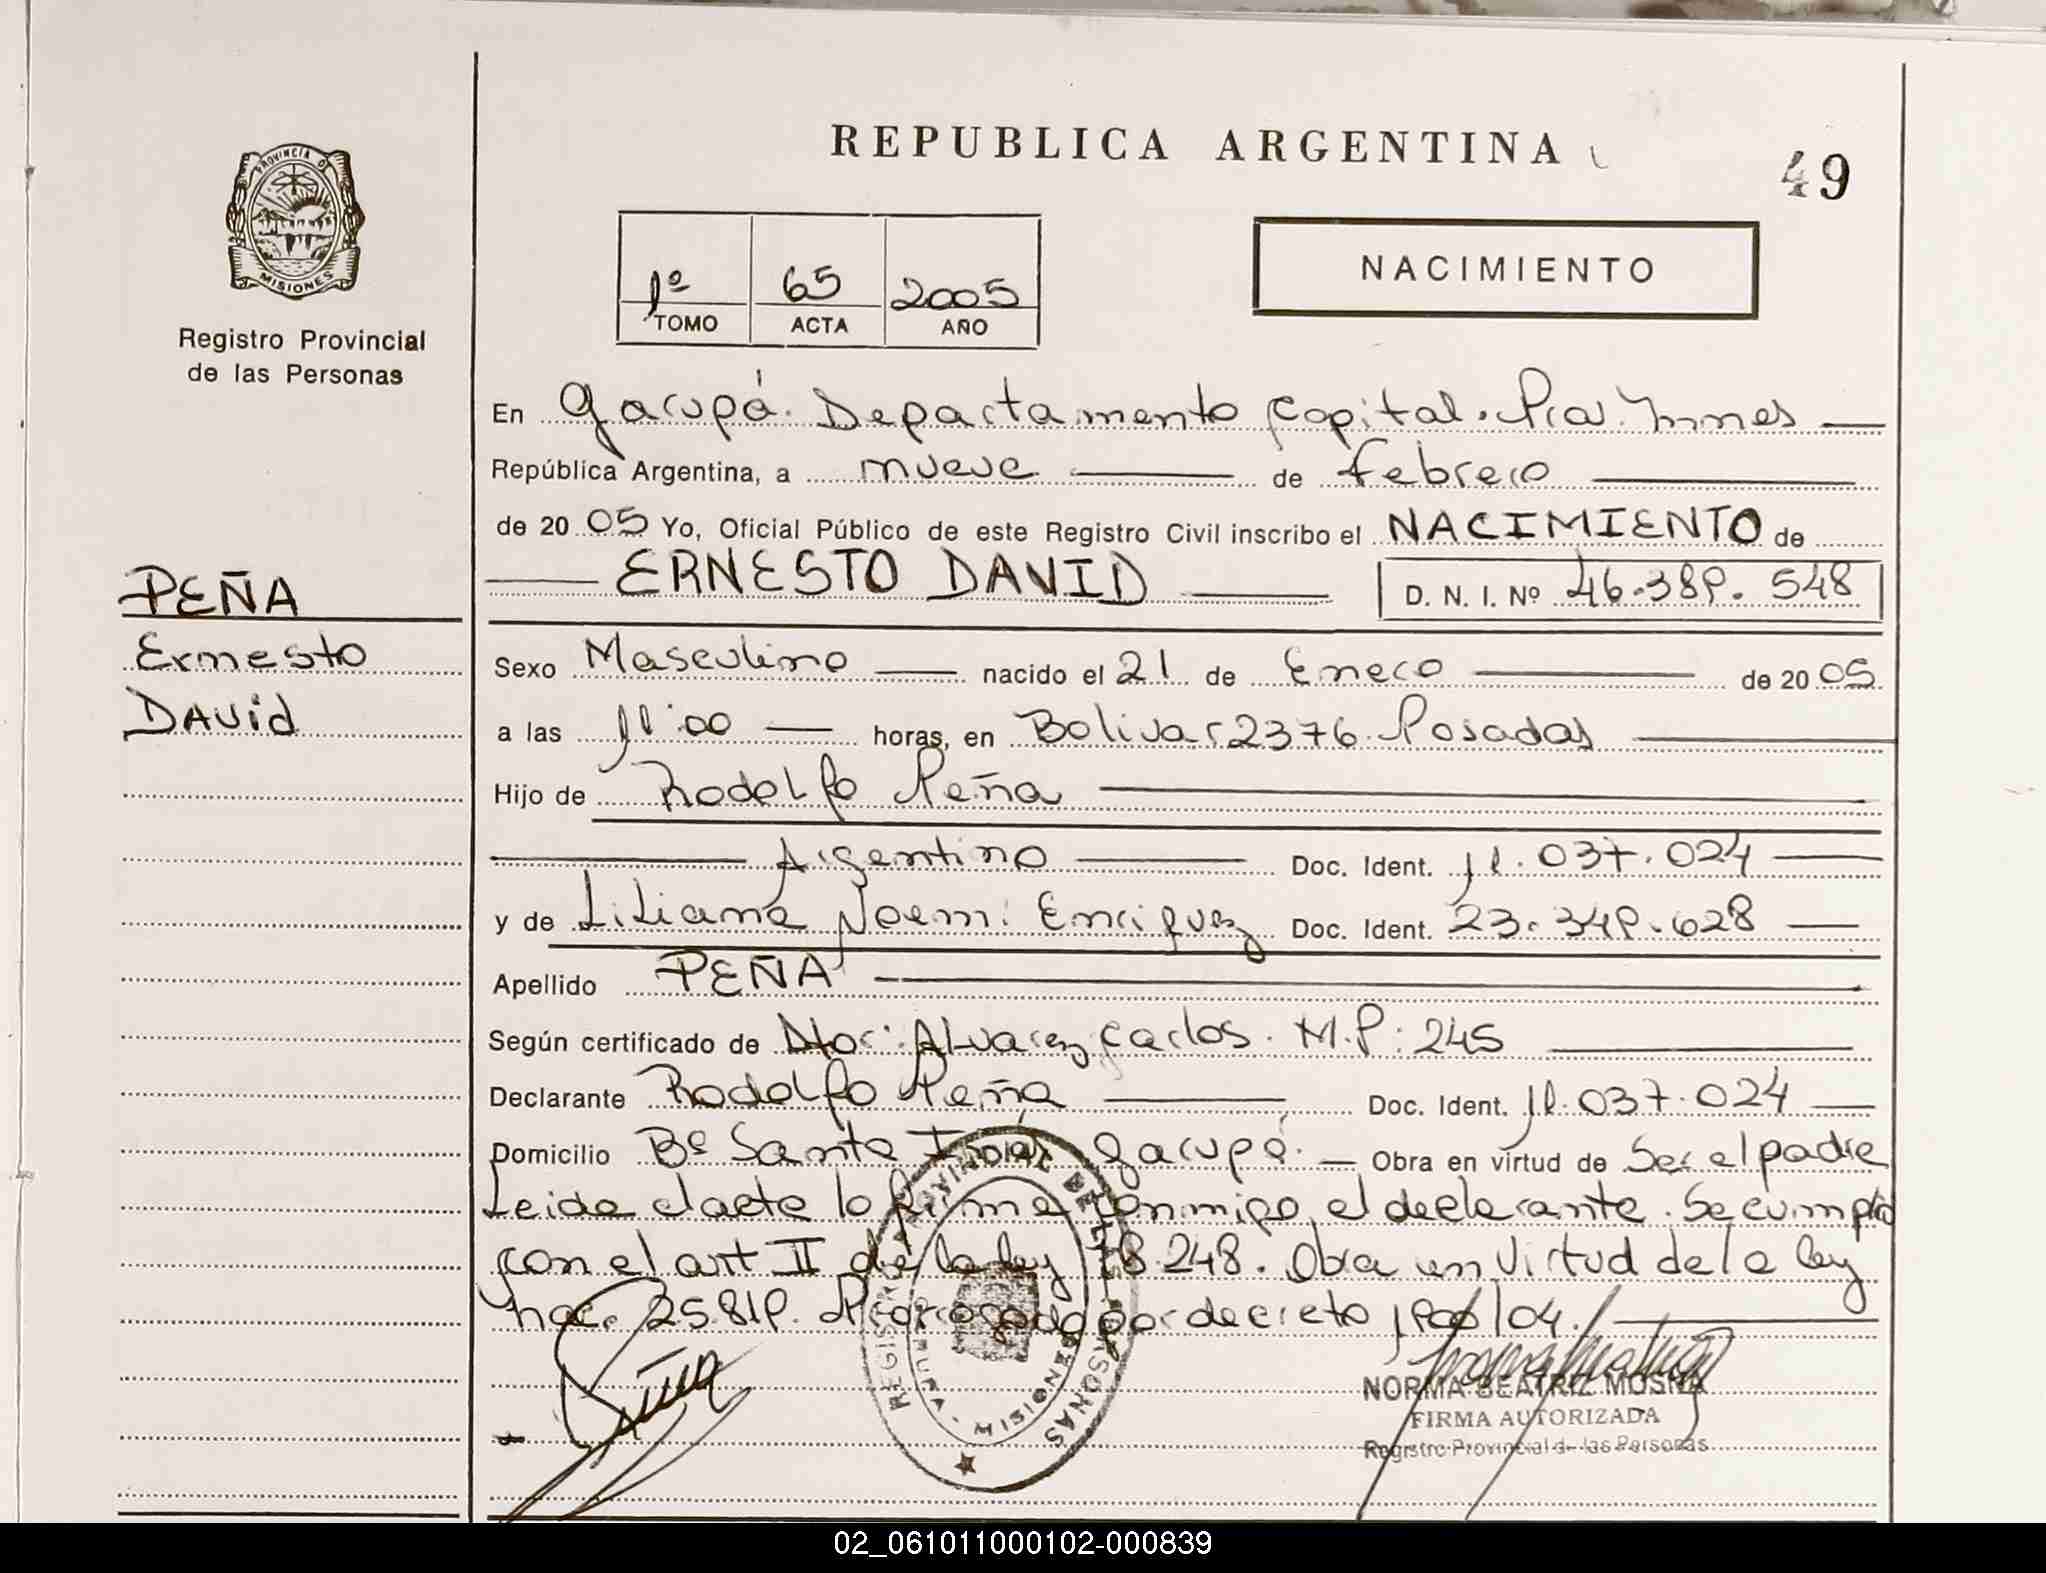 REPUBLICA ARGENTINA
49
PROVINCIA DE
MISIONES
Registro Provincial
de las Personas
1º 65 2005
TOMO ACTA AÑO
NACIMIENTO
En Garupá. Departamento Capital. Pcia. Mnes
República Argentina, a nueve de febrero
de 2005 Yo, Oficial Público de este Registro Civil inscribo el NACIMIENTO de
ERNESTO DAVID D. N. I. Nº 46.389.548
PEÑA
Ernesto
David
Sexo Masculino nacido el 21 de Enero de 2005
a las 11:00 horas, en Bolivar 2376 Posadas
Hijo de Rodolfo Peña
Argentino Doc. Ident. 11.037.024
y de Liliana Noemi Enriquez Doc. Ident. 23.349.628
Apellido PEÑA
Según certificado de Dtor: Alvarez Carlos. M.P: 245
Declarante Rodolfo Peña Doc. Ident. 11.037.024
Domicilio Bº Santa Ines Garupá. Obra en virtud de Ser el padre
Leida el acta la firma conmigo el declarante. Se cumplio
con el art II de la ley 18.248. Obra en virtud de la ley
nac. 25.819. Prorrogado por decreto /04.
REGISTRO PROVINCIAL DE LAS PERSONAS
MISIONES
NORMA BEATRIZ MOSNA
FIRMA AUTORIZADA
Registro Provincial de las Personas
02_061011000102-000839